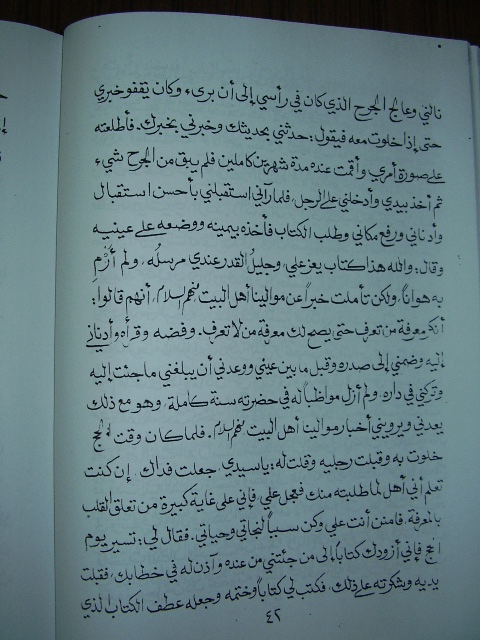 نالني وعالج الجرح الذي كان في رأسي إلى أن برىء وكان يقفو خبري
حتى إذا خلوت معه فيقول: حدثني بحديثك وخبرني بخبرك. فأطلعته
على صورة أمري وأقمت عنده مدة شهرين كاملين فلم يبق من الجرح شيء
ثم أخذ بيدي وأدخلني على الرجل، فلما رآني استقبلني بأحسن استقبال
وأدناني ورفع مكاني وطلب الكتاب فأخذه بيمينه ووضعه على عينيه
وقال: والله هذا كتاب يعز علي، وجليل القدر عندي مرسله، ولم أزم
به هواناً، ولكن تأملت خبراً عن موالينا أهل البيت عليهم السلام، أنهم قالوا:
أنكر معرفة من تعرف حتى يصح لك معرفة من لا تعرف. وفضه وقرأه وأدناني
إليه وضمني إلى صدره وقبل ما بين عيني ووعدني أن يبلغني ما جئت إليه
وتركني في داره، ولم أزل مواظباً له في حضرته سنة كاملة، وهو مع ذلك
يعدني ويرويني أخبار موالينا أهل البيت عليهم السلام. فلما كان وقت الحج
خلوت به وقبلت رجليه وقلت له: يا سيدي، جعلت فداك، إن كنت
تعلم أني أهل لما طلبته منك فعجل علي، فإني على غاية كبيرة من تعلق القلب
بالمعرفة، فامنن أنت علي وكن سبباً لنجاتي وحياتي. فقال لي: تسير يوم
الحج فإني أزودك كتاباً إلى من جئتني من عنده وآذن له في خطابك، فقبلت
يديه وشكرته على ذلك، فكتب لي كتاباً وختمه وجعله عطف الكتاب الذي
٤٢